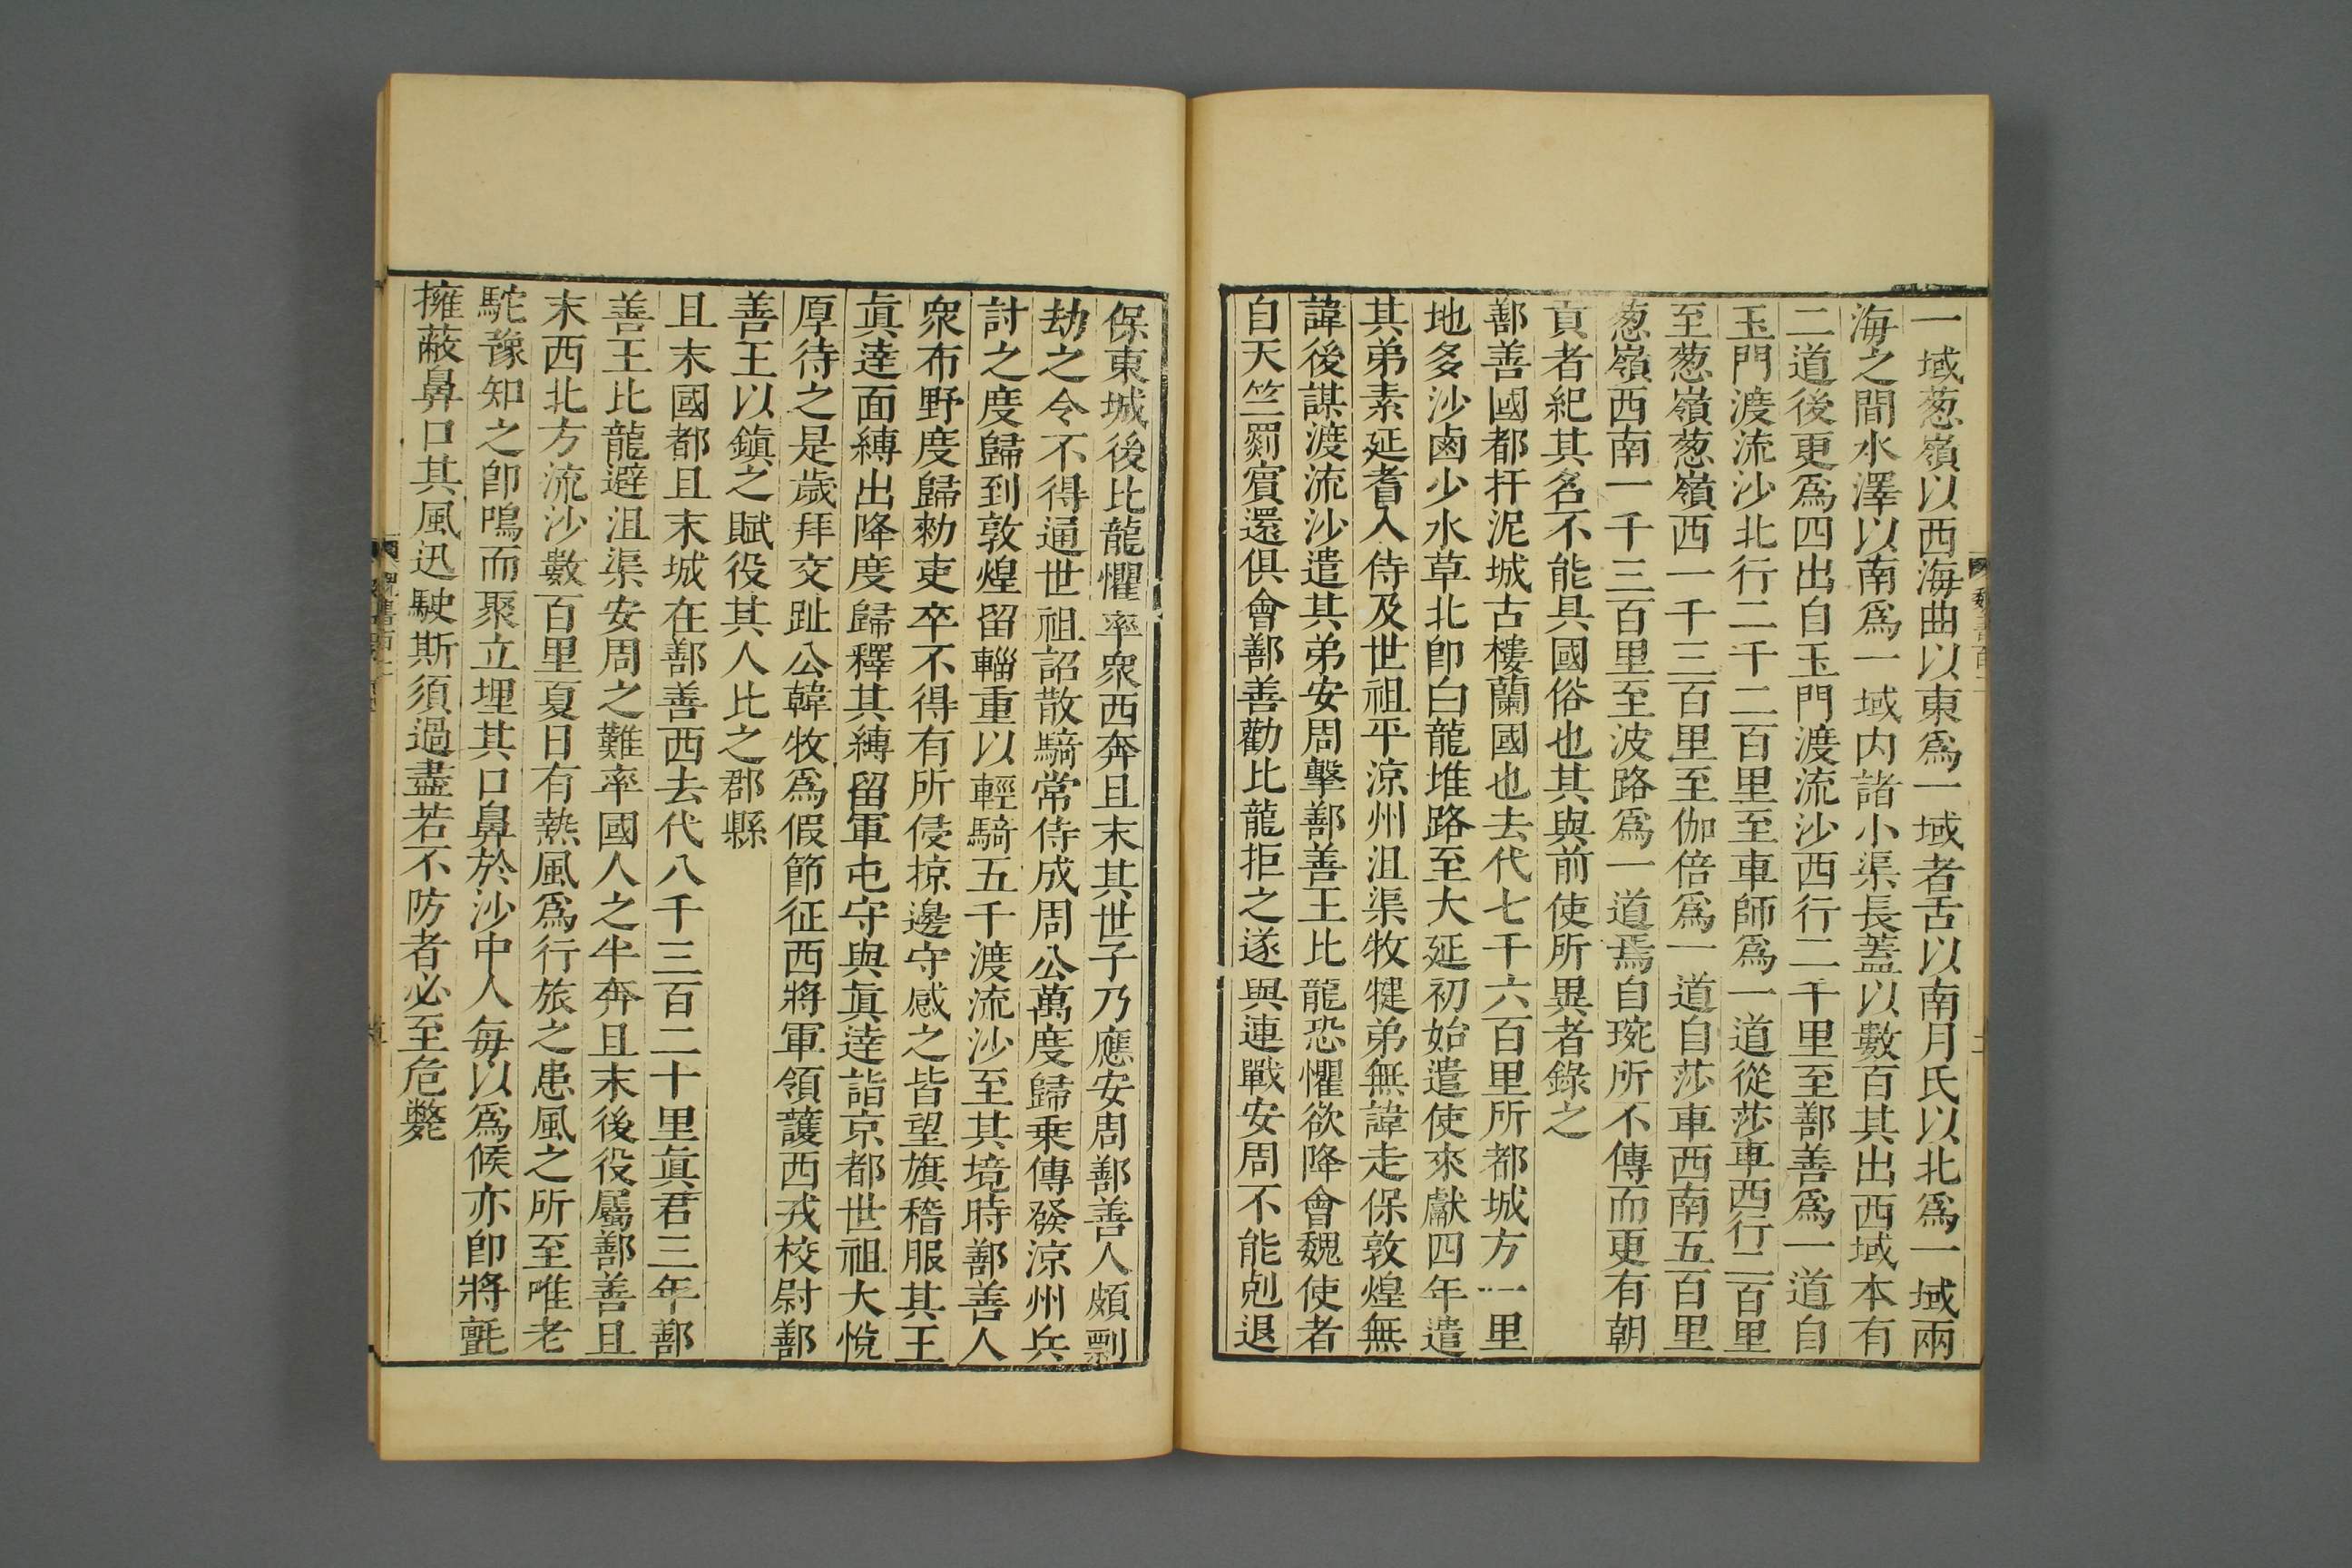 一域葱嶺以西海曲以東爲一域者舌以南月氏以北爲一域兩
海之間水澤以南爲一域内諸小渠長蓋以數百其出西域本有
二道後更爲四出自玉門渡流沙西行二千里至鄯善爲一道自
玉門渡流沙北行二千二百里至車師爲一道從莎車西行一百里
至葱嶺葱嶺西一千三百里至伽倍爲一道自莎車西南五百里
葱嶺西南一千三百里至波路爲一道焉自琬所不傳而更有朝
貢者紀其名不能具國俗也其與前使所異者錄之
鄯善國都扞泥城古樓蘭國也去代七千六百里所都城方一里
地多沙鹵少水草北卽白龍堆路至大延初始遣使來獻四年遣
其弟素延耆入侍及世祖平涼州沮渠牧犍弟無諱走保敦煌無
諱後謀渡流沙遣其弟安周擊鄯善王比龍恐懼欲降會魏使者
自天竺罽賓還俱會鄯善勸比龍拒之遂與連戰安周不能剋退
保東城後比龍懼率衆西奔且末其世子乃應安周鄯善人頗剽
劫之令不得通世祖詔散騎常侍成周公萬度歸乗傳發涼州兵
討之度歸到敦煌留輜重以輕騎五千渡流沙至其境時鄯善人
衆布野度歸勑吏卒不得有所侵掠邊守感之皆望旗稽服其王
眞達面縛出降度歸釋其縛留軍屯守與眞達詣京都世祖大悅
厚待之是歲拜交趾公韓牧爲假節征西將軍領護西戎校尉鄯
善王以鎭之賦役其人比之郡縣
且末國都且末城在鄯善西去代八千三百二十里眞君三年鄯
善王比龍避沮渠安周之難率國人之半奔且末後役屬鄯善且
末西北方流沙數百里夏日有熱風爲行旅之患風之所至唯老
駝豫知之卽鳴而聚立埋其口鼻於沙中人每以爲候亦卽將氈
擁蔽鼻口其風迅駛斯須過盡若不防者必至危斃